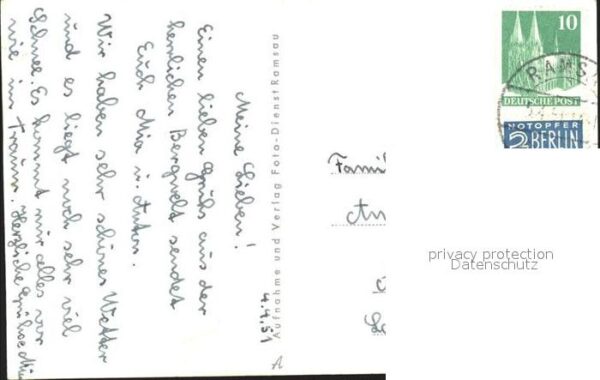 4.4.51
Meine Lieben!
Einen lieben Gruß aus der
herrlichen Bergwelt sendet
Euch Mia u. Anton.
Wir haben sehr schönes Wetter
und es liegt noch sehr viel
Schnee. Es kommt mir alles vor
wie im Traum. Herzliche Grüße Mia
Aufnahme und Verlag Foto-Dienst Ramsau
Famil
10
DEUTSCHE POST
RAMS
NOTOPFER
2 BERLIN
privacy protection
Datenschutz
A